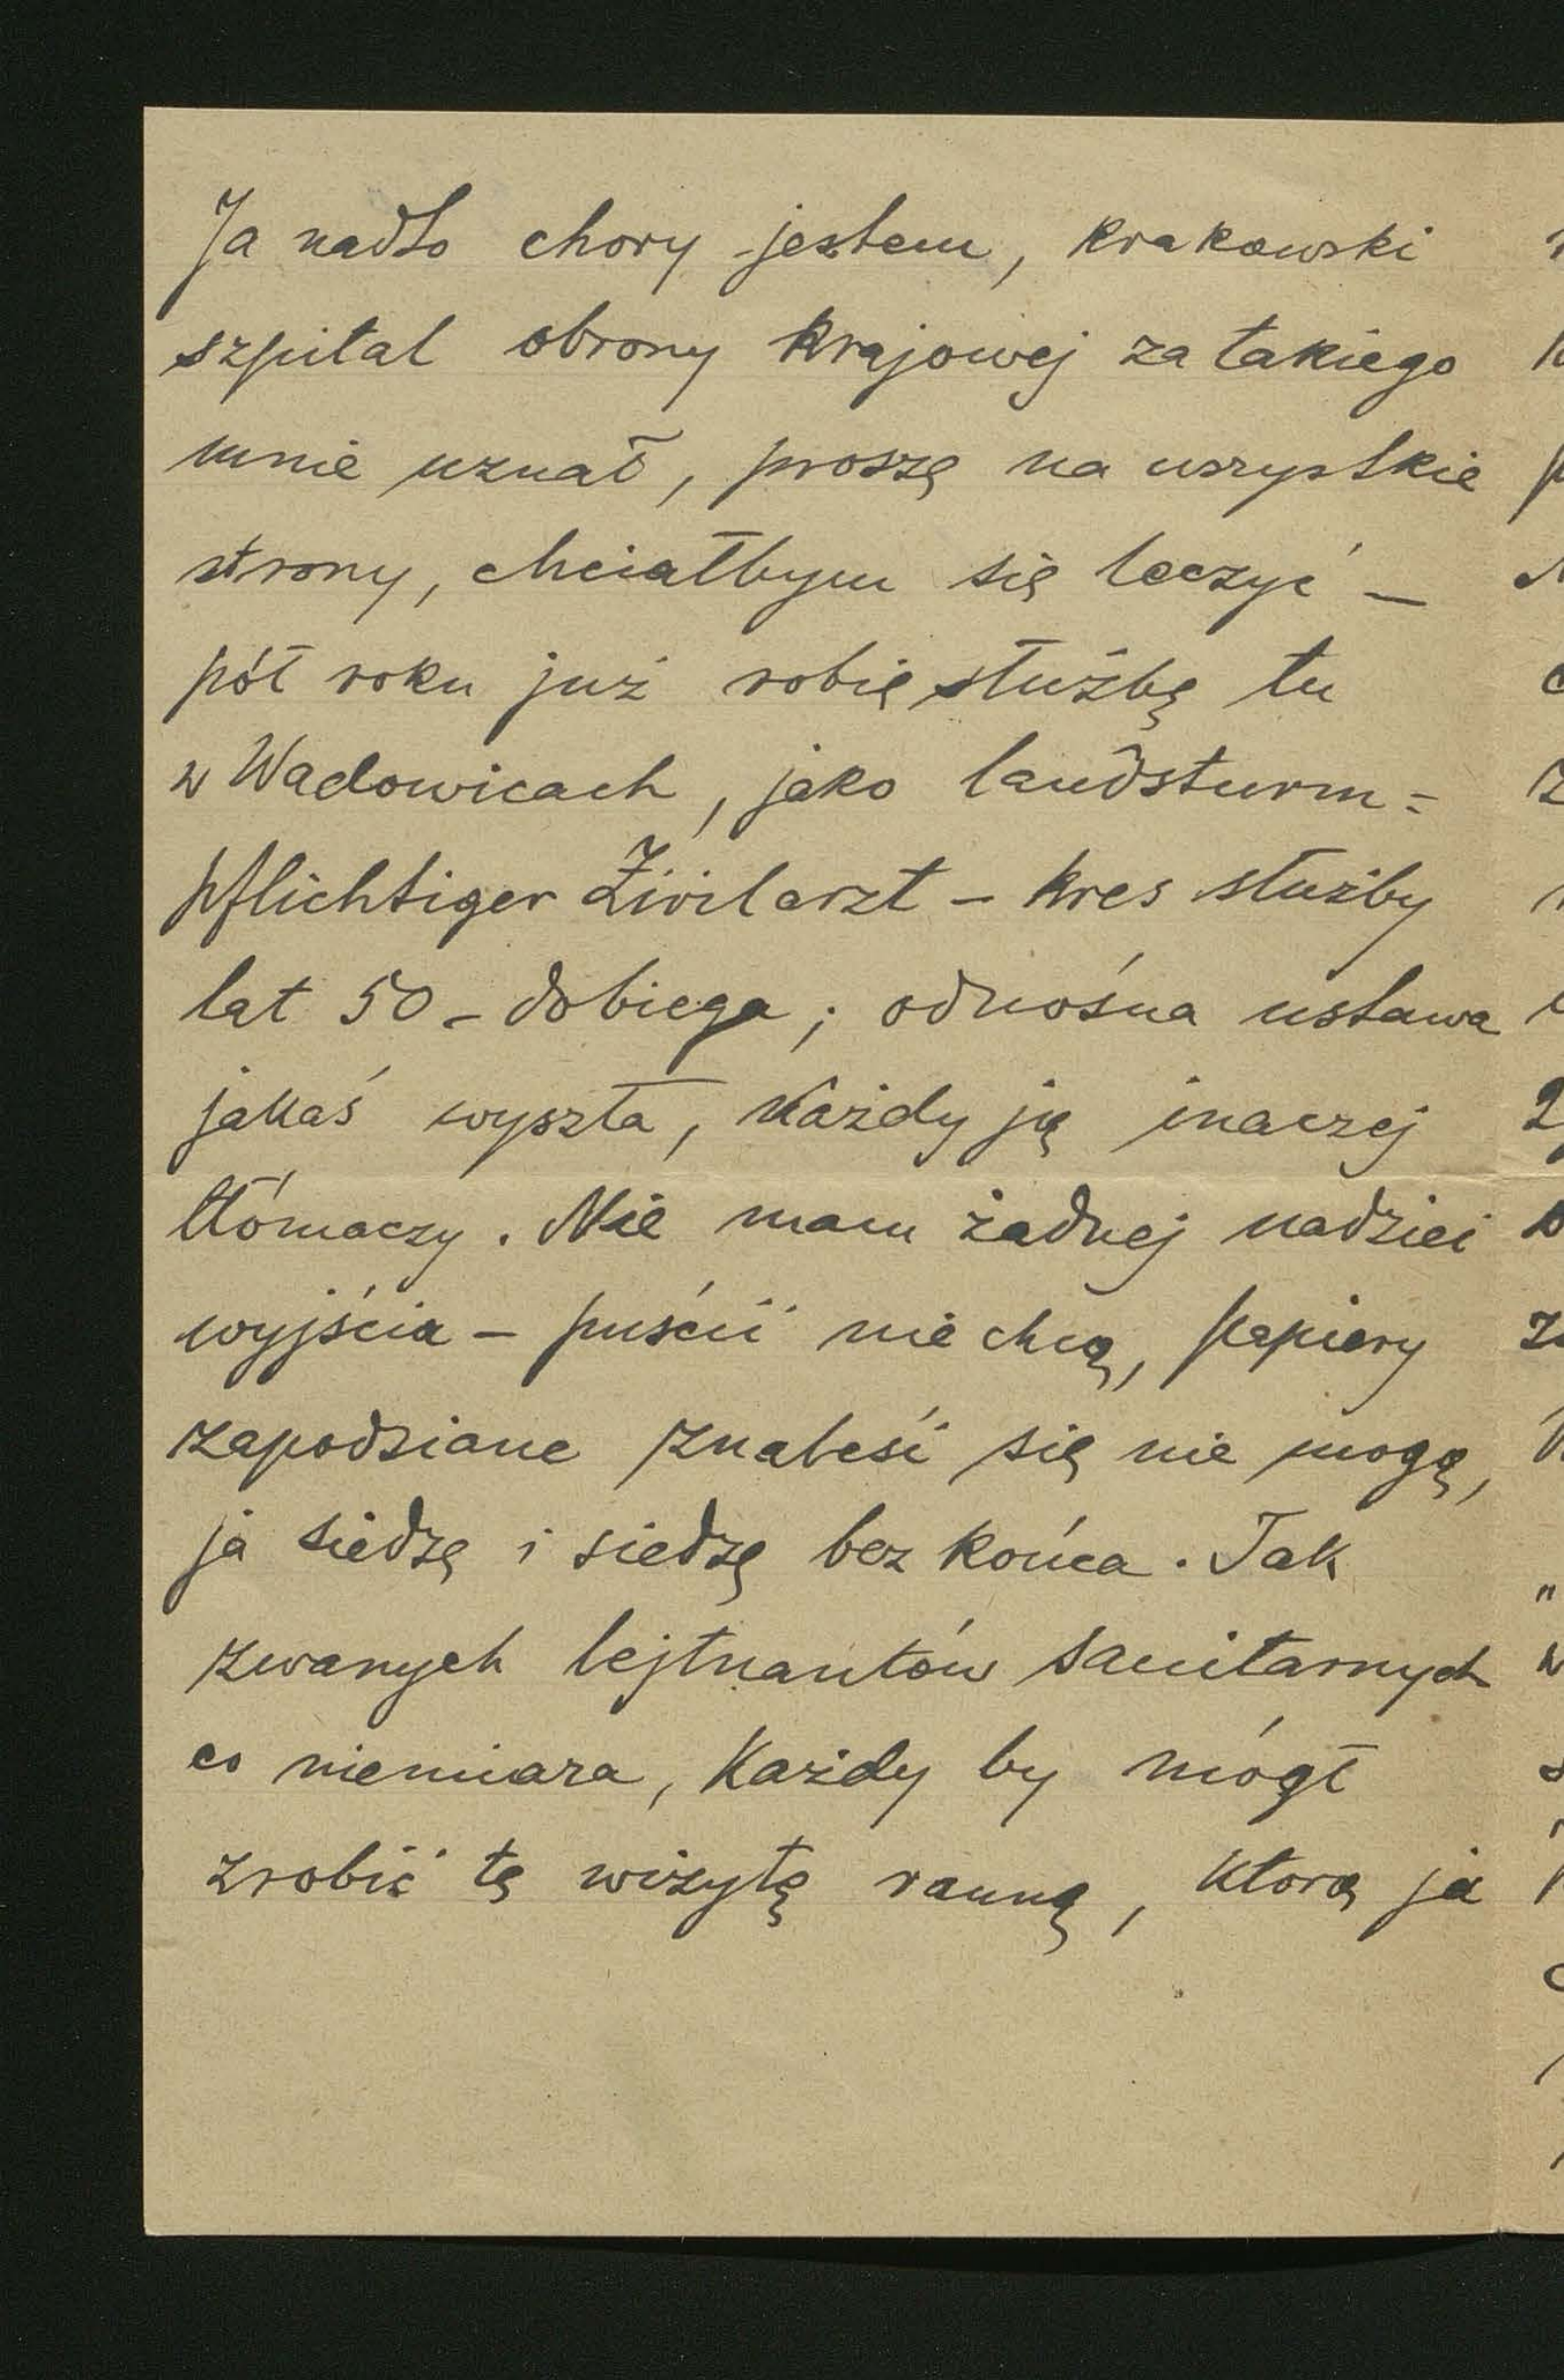 Ja nadto chory jestem, krakowski
szpital obrony krajowej za takiego
mnie uznał, proszę na wszystkie
strony, chciałbym się leczyć –
pół roku już robię służbę tu
w Wadowicach, jako landsturm=
pflichtiger Zivilarzt – kres służby
lat 50 – dobiega; odnośna ustawa
jakaś wyszła, każdy ją inaczej
tłómaczy. Nie mam żadnej nadziei
wyjścia – puścić nie chcą, papiery
zapodziane znaleść się nie mogą,
ja siedzę i siedzę bez końca. Tak
zwanych lejtnantów sanitarnych
co niemiara, każdy by mógł
zrobić tę wizytę ranną, ktorą ja